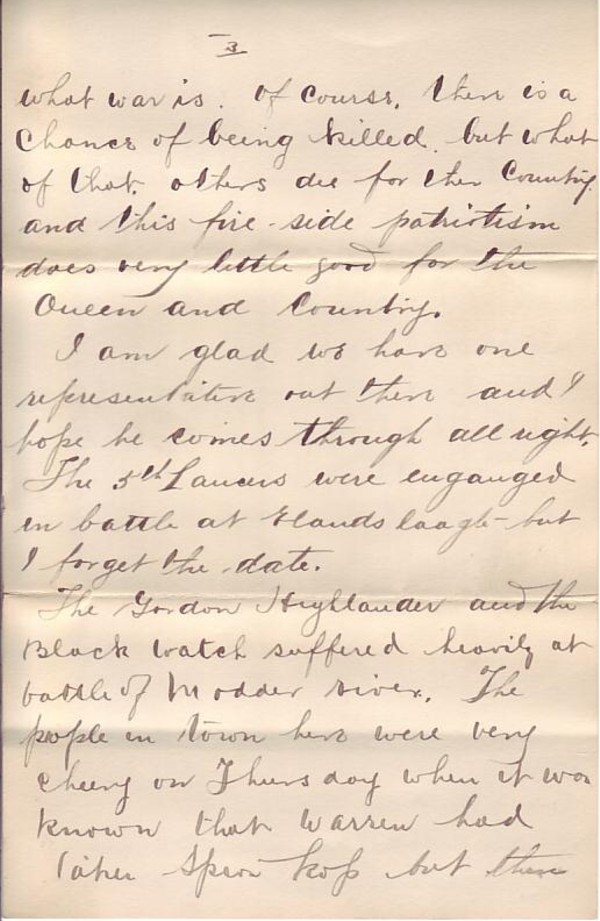 3
what war is. Of course, there is a
chance of being killed, but what
of that. others die for their Country.
and this fire-side patriotism
does very little good for the
Queen and Country.
I am glad we have one
representative out there and I
hope he comes through all right.
The 5th Lancers were enganged
in battle at Elandslaagte but
I forget the date.
The Gordon Highlander and the
Black Watch suffered heavily at
battle of Modder river. The
people in town here were very
cheery on Thursday when it was
known that Warren had
taken Spion Kop but there